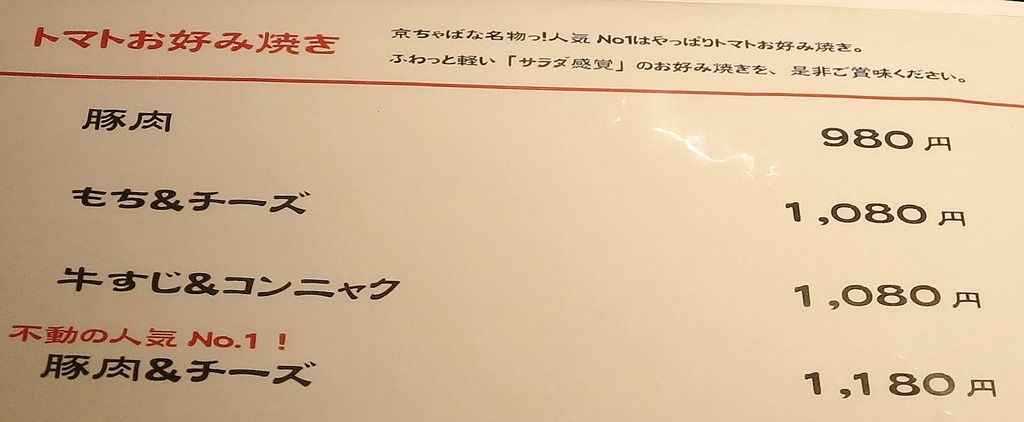 トマトお好み焼き
京ちゃばな名物っ!人気 No1はやっぱりトマトお好み焼き。
ふわっと軽い「サラダ感覚」のお好み焼きを、是非ご賞味ください。
豚肉 980 円
もち&チーズ 1,080 円
牛すじ&コンニャク 1,080 円
不動の人気 No.1！
豚肉&チーズ 1,180 円